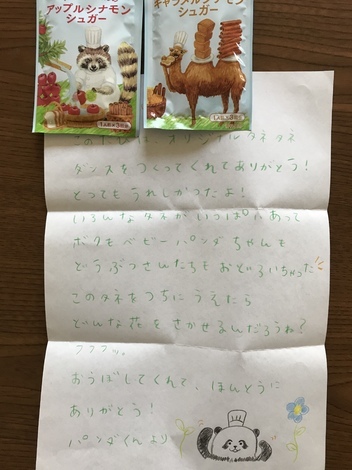 アップルシナモン
シュガー
キャラメルシナモン
シュガー
このたびは、オリジナルタネタネ
ダンスをつくってくれてありがとう!
とってもうれしかったよ!
いろんなタネがいっぱいあって
ボクもベビーパンダちゃんも
どうぶつさんたちもおどろいちゃった
このタネをつちにうえたら
どんな花をさかせるんだろうね?
フフフッ。
おうぼしてくれて、ほんとうに
ありがとう!
パンダくんより